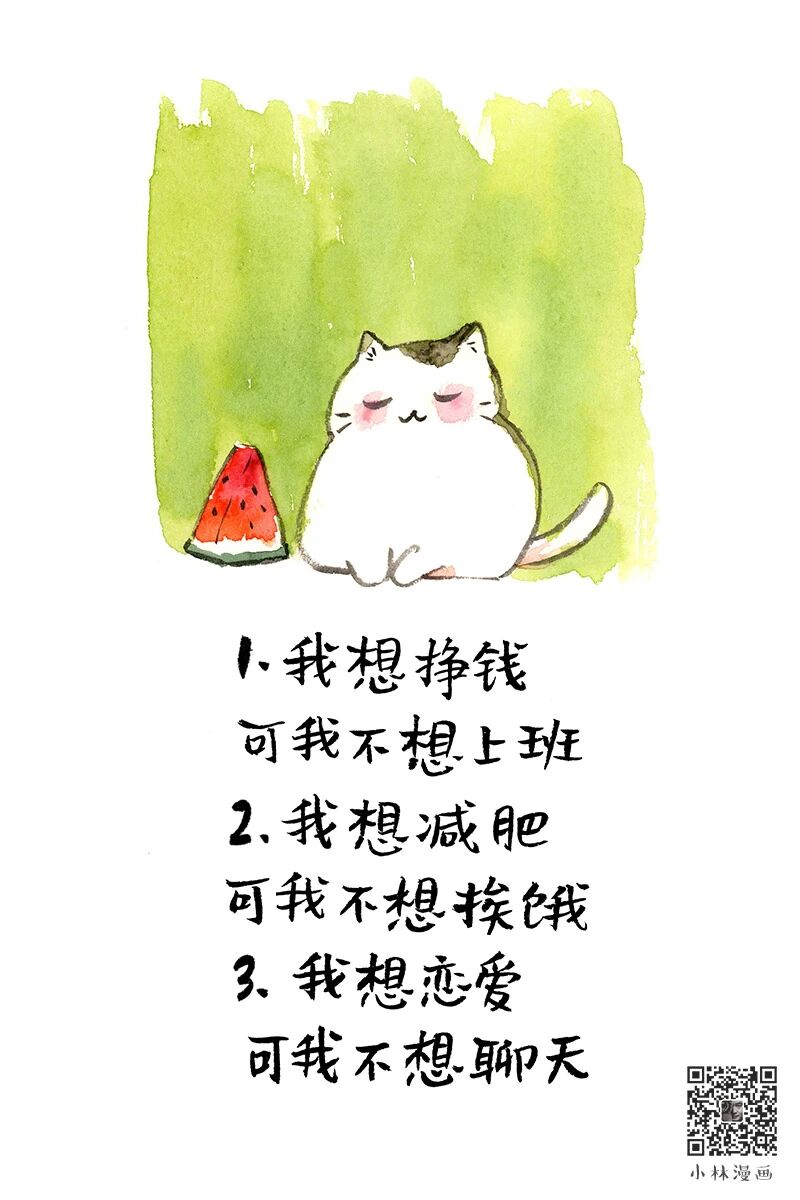 1.我想挣钱
可我不想上班
2.我想减肥
可我不想挨饿
3.我想恋爱
可我不想聊天
小林漫画